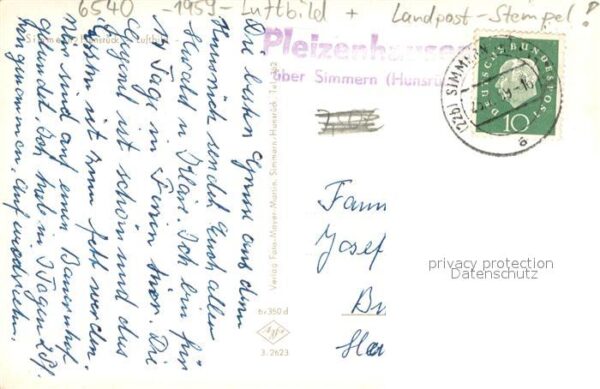 6540 - 1959 - Luftbild + Landpost-Stempel!
Simmern Hunsrück Luftbild
Die besten Grüße aus dem
Hunsrück sendet Euch allen
Ich bin für
14 Tage in Ferien hier. Die
Gegend ist schön und das
Essen ist zum fett werden.
Wir sind auf einem Bauernhof
gelandet. Ich hab in 3 Tagen
zugenommen. Auf Wiedersehn.
Verlag Foto-Mayer-Martin, Simmern/Hunsrück Tel.
br 350 d
Agfa
3. 2623
Pleizenhausen
über Simmern (Hunsrück)
(22b) SIMMERN
DEUTSCHE BUNDESPOST
10
Fam
Josef
privacy protection
Datenschutz